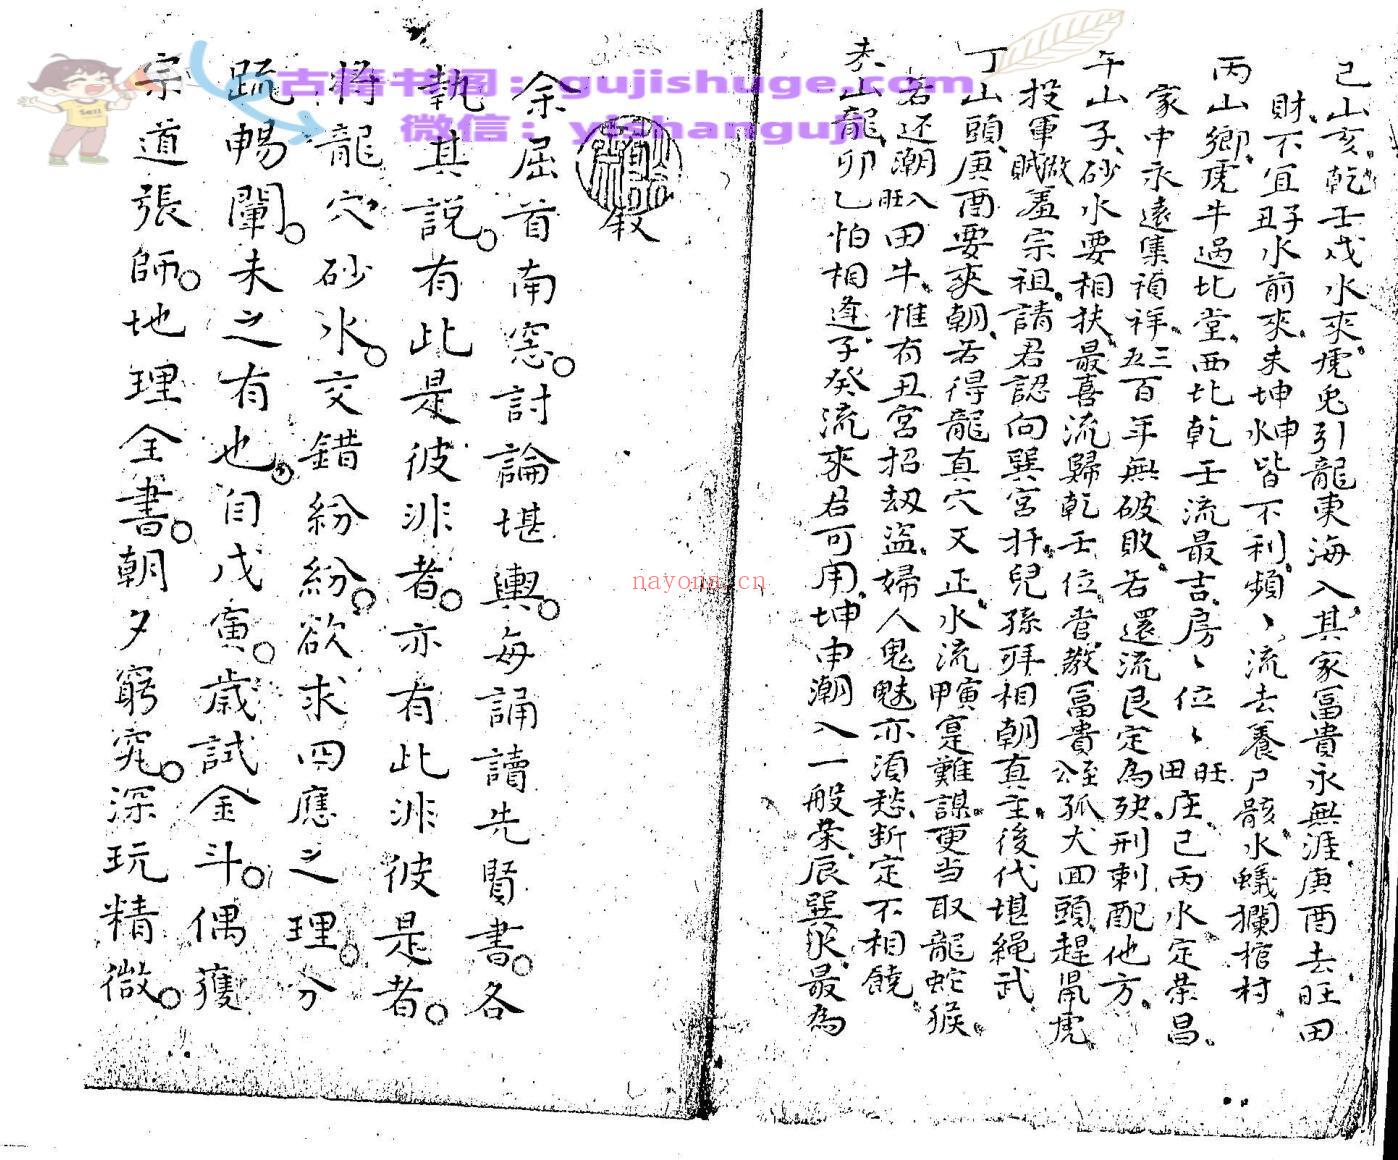 古籍书阁：gujishuge.com
微信：yishanguji
nayona.cn
巳山亥乾壬戌水來虎兎引龍東海入其家冨貴永無涯庚酉去旺田
財不宜丑子水前來未坤坤申水皆不利頻、流去養尸骸水蟻攔棺材
丙山郷虎牛過北堂西北乾壬流最吉房、位、旺田庄己丙水定荣昌
家中永遠集禎祥三五百年無破敗若還流艮定為殃刑刺配他方
午山子砂水要相扶最喜流歸乾壬位管教冨貴至公孤犬回頭趕鼠虎
投軍賊做羞宗祖請君認向巽宮扦兒孫拜相朝真主後代堪繩武
丁山頭庚酉要來朝若得龍真穴又正水流寅甲寔難謀更当取龍蛇猴
若还潮入旺田牛惟有丑宮招刼盗婦人鬼魅亦須愁断定不相饒
未山龍卯乙怕相逢子癸流來君可用坤申潮入一般荣辰巽水最為
叙
余屈首南窓討論堪輿每誦讀先賢書各
執其說有此是彼非者亦有此非彼是者
将龍穴砂水交錯紛紛欲求四應之理分
疏暢闡未之有也自戊寅歳試金斗偶獲
宗道張師地理全書朝夕窮究深玩精微